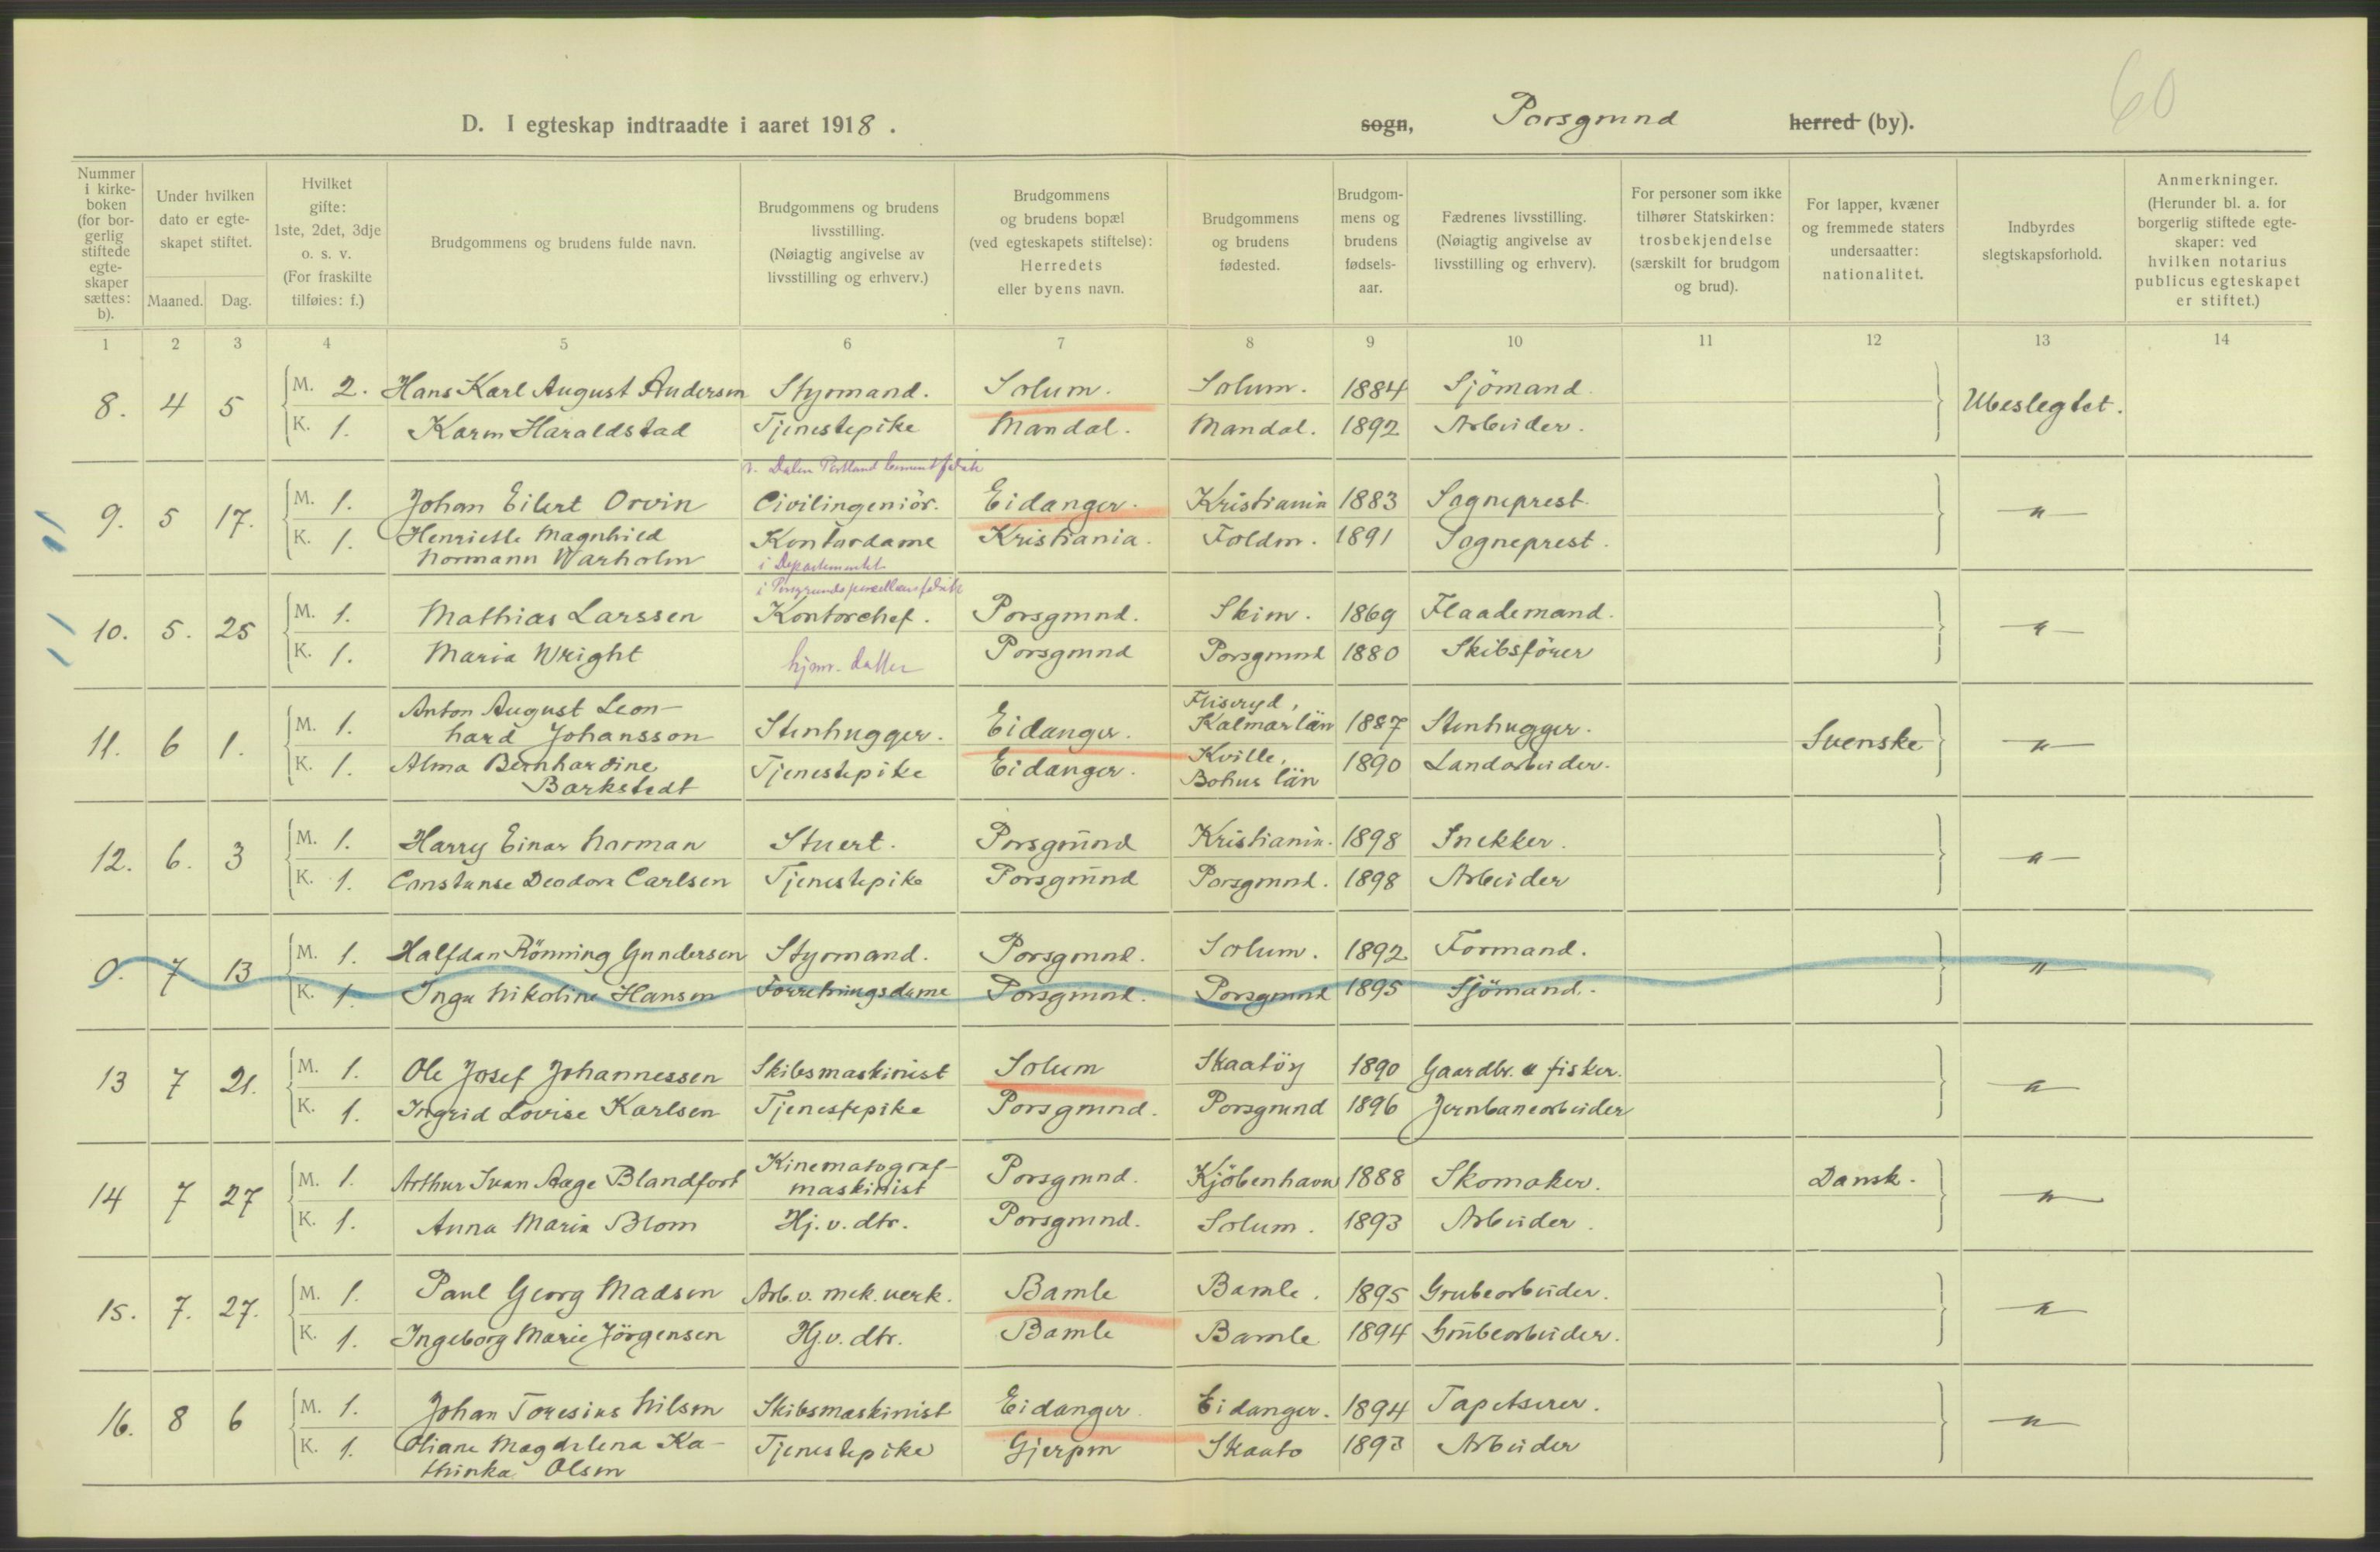 60
D. I egteskap indtraadte i aaret 1918. sogn, Porsgrund herred (by).
Nummer i kirkeboken (for borgerlig stiftede egteskaper sættes: b).
Under hvilken dato er egteskapet stiftet.
Maaned. Dag.
Hvilket gifte: 1ste, 2det, 3dje o. s. v. (For fraskilte tilføies: f.)
Brudgommens og brudens fulde navn.
Brudgommens og brudens livsstilling. (Nøiagtig angivelse av livsstilling og erhverv.)
Brudgommens og brudens bopæl (ved egteskapets stiftelse): Herredets eller byens navn.
Brudgommens og brudens fødested.
Brudgommens og brudens fødselsaar.
Fædrenes livsstilling. (Nøiagtig angivelse av livsstilling og erhverv).
For personer som ikke tilhører Statskirken: trosbekjendelse (særskilt for brudgom og brud).
For lapper, kvæner og fremmede staters undersaatter: nationalitet.
Indbyrdes slegtskapsforhold.
Anmerkninger. (Herunder bl. a. for borgerlig stiftede egteskaper: ved hvilken notarius publicus egteskapet er stiftet.)
1 2 3 4 5 6 7 8 9 10 11 12 13 14
8. 4 5 M. 2. Hans Karl August Andersen Styrmand. Solum. Solum. 1884 Sjömand Ubeslegtet.
K. 1. Karen Haraldstad Tjenestepike Mandal. Mandal. 1892 Arbeider.
v. Dalen Portland Cementfabrik
9. 5 17. M. 1. Johan Eilert Orvin Civilingeniör. Eidanger. Kristiania 1883 Sogneprest. "
K. 1. Henriette Magnhild Normann Warholm Kontordame Kristiania. Folden. 1891 Sogneprest.
i Departementet
i Porsgrunds porcellænsfabrik
10. 5. 25 M. 1. Mathias Larssen Kontorchef. Porsgrund. Skien. 1869 Flaademand. "
K. 1. Maria Wright hjemv. datter Porsgrund Porsgrund 1880 Skibsförer
11. 6 1. M. 1. Anton August Leon-
hard Johansson Stenhugger. Eidanger. Fliseryd, Kalmar län 1887 Stenhugger. Svenske "
K. 1. Alma Bernhardine
Barkstedt Tjenestepike Eidanger. Kville, Bohus län 1890 Landarbeider.
12. 6. 3 M. 1. Harry Einar Norman Stuert. Porsgrund Kristiania. 1898 Snekker. "
K. 1. Constanse Deodora Carlsen Tjenestepike Porsgrund Porsgrund. 1898 Arbeider
0. 7 13 M. 1. Halfdan Rönning Gundersen Styrmand. Porsgrund. Solum. 1892 Formand. "
K. 1. Inga Nikoline Hansen Forretningsdame Porsgrund. Porsgrund 1895 Sjömand.
13 7 21. M. 1. Ole Josef Johannessen Skibsmaskinist Solum Skaatöy 1890 Gaardbr. & fisker. "
K. 1. Ingrid Lovise Karlsen Tjenestepike Porsgrund. Porsgrund 1896 Jernbanearbeider
14 7 27 M. 1. Arthur Ivan Aage Blandfort Kinematograf-
maskinist Porsgrund. Kjöbenhavn 1888 Skomaker. Dansk. "
K. 1. Anna Maria Blom Hj. v. dtr. Porsgrund. Solum. 1893 Arbeider.
15. 7. 27. M. 1. Paul Georg Madsen Arb. v. mek. verk. Bamle Bamle. 1895 Grubearbeider. "
K. 1. Ingeborg Marie Jörgensen Hj. v. dtr. Bamle Bamle 1894 Grubearbeider.
16. 8 6 M. 1. Johan Toresius Nilsen Skibsmaskinist Eidanger Eidanger. 1894 Tapetserer. "
K. 1. Oliane Magdalena Ka-
thinka Olsen Tjenestepike Gjerpen Skaato 1893 Arbeider